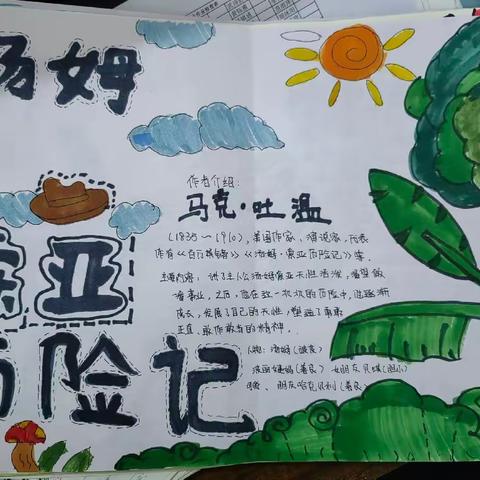 汤姆
作者介绍:
马克·吐温
(1835~1910),美国作家、演说家,代表
作有《百万英镑》《汤姆·索亚历险记》等.
主要内容: 讲了主人公汤姆索亚天性活泼,渴望做
番事业,之后,他在一次次的历险中,逐渐
成长,发展了自己的天性,塑造了勇敢
正直、敢作敢当的精神.
人物:汤姆
(善良) 女朋友贝琪
朋友哈克贝利(善良)
索亚
历险记